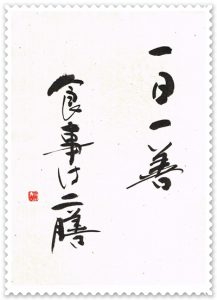 一日一善
食事は二膳